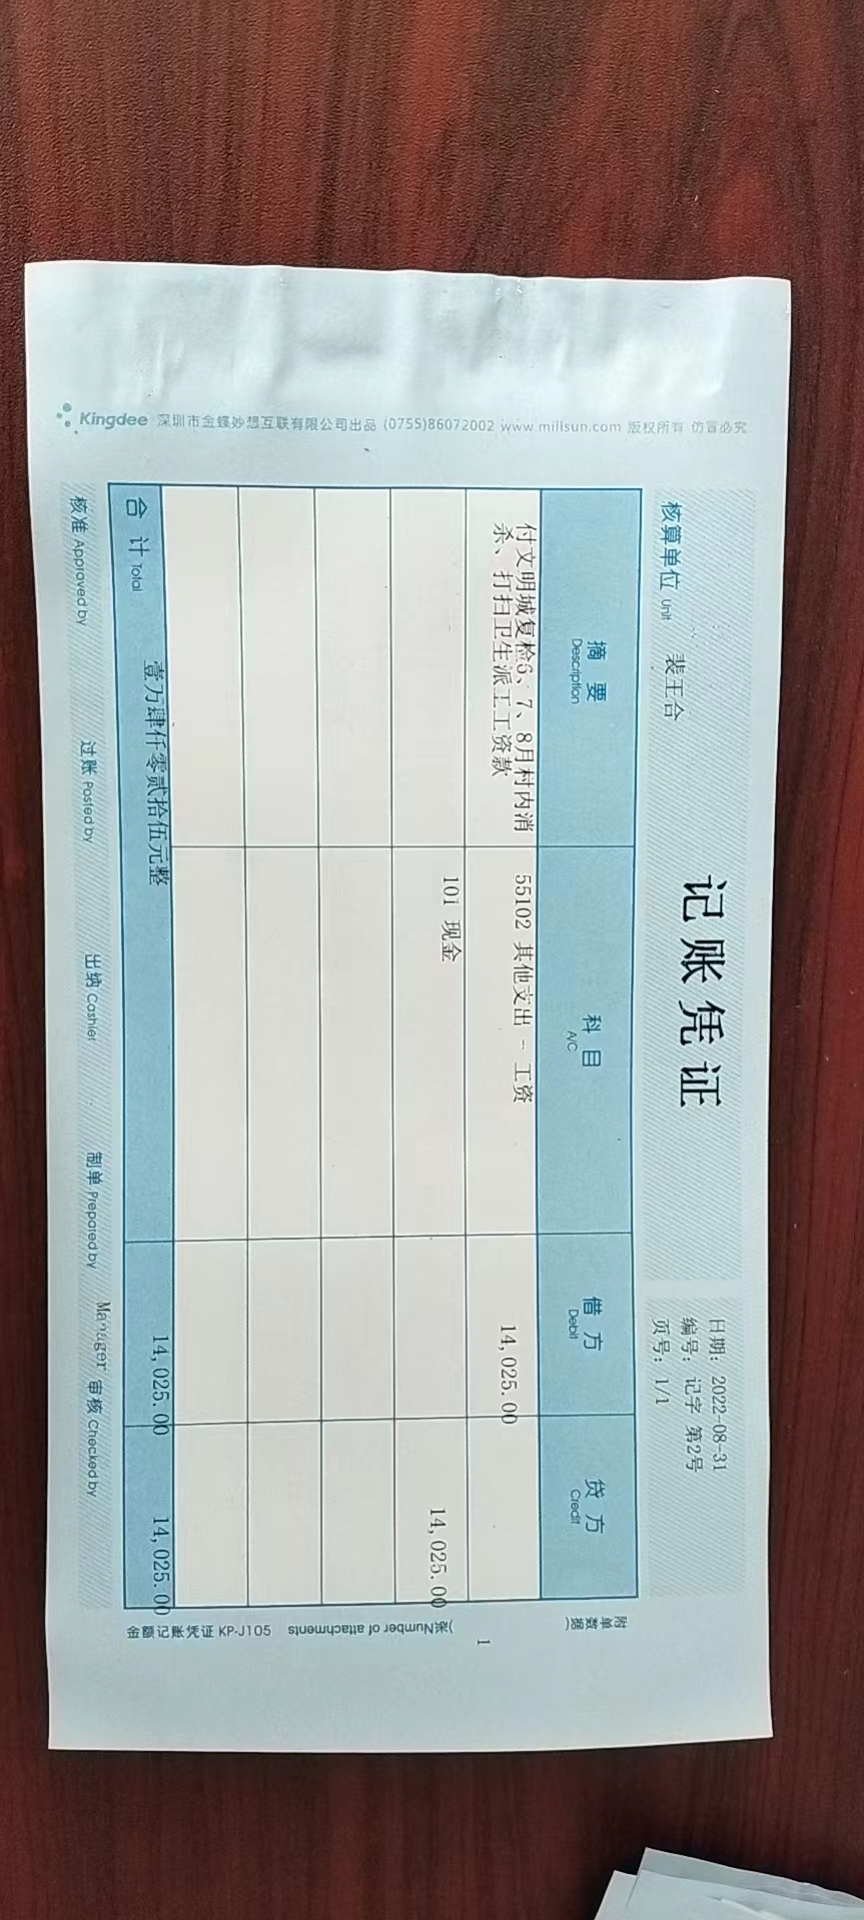 记账凭证
核算单位 Unit 裴王合
日期: 2022-08-31
编号: 记字 第2号
页号: 1/1
摘要 Description 科目 A/C 借方 Debit 贷方 Credit
付文明城复检6、7、8月村内消
杀、打扫卫生派工工资款 55102 其他支出 - 工资 14,025.00
101 现金 14,025.00
合计 Total 壹万肆仟零贰拾伍元整 14,025.00 14,025.00
核准 Approved by 过账 Posted by 出纳 Cashier 制单 Prepared by Manager 审核 Checked by
附单数据(
1
)张(Number of attachments
金额记账凭证 KP-J105
Kingdee 深圳市金蝶妙想互联有限公司出品 (0755)86072002 www.millsun.com 版权所有 仿冒必究